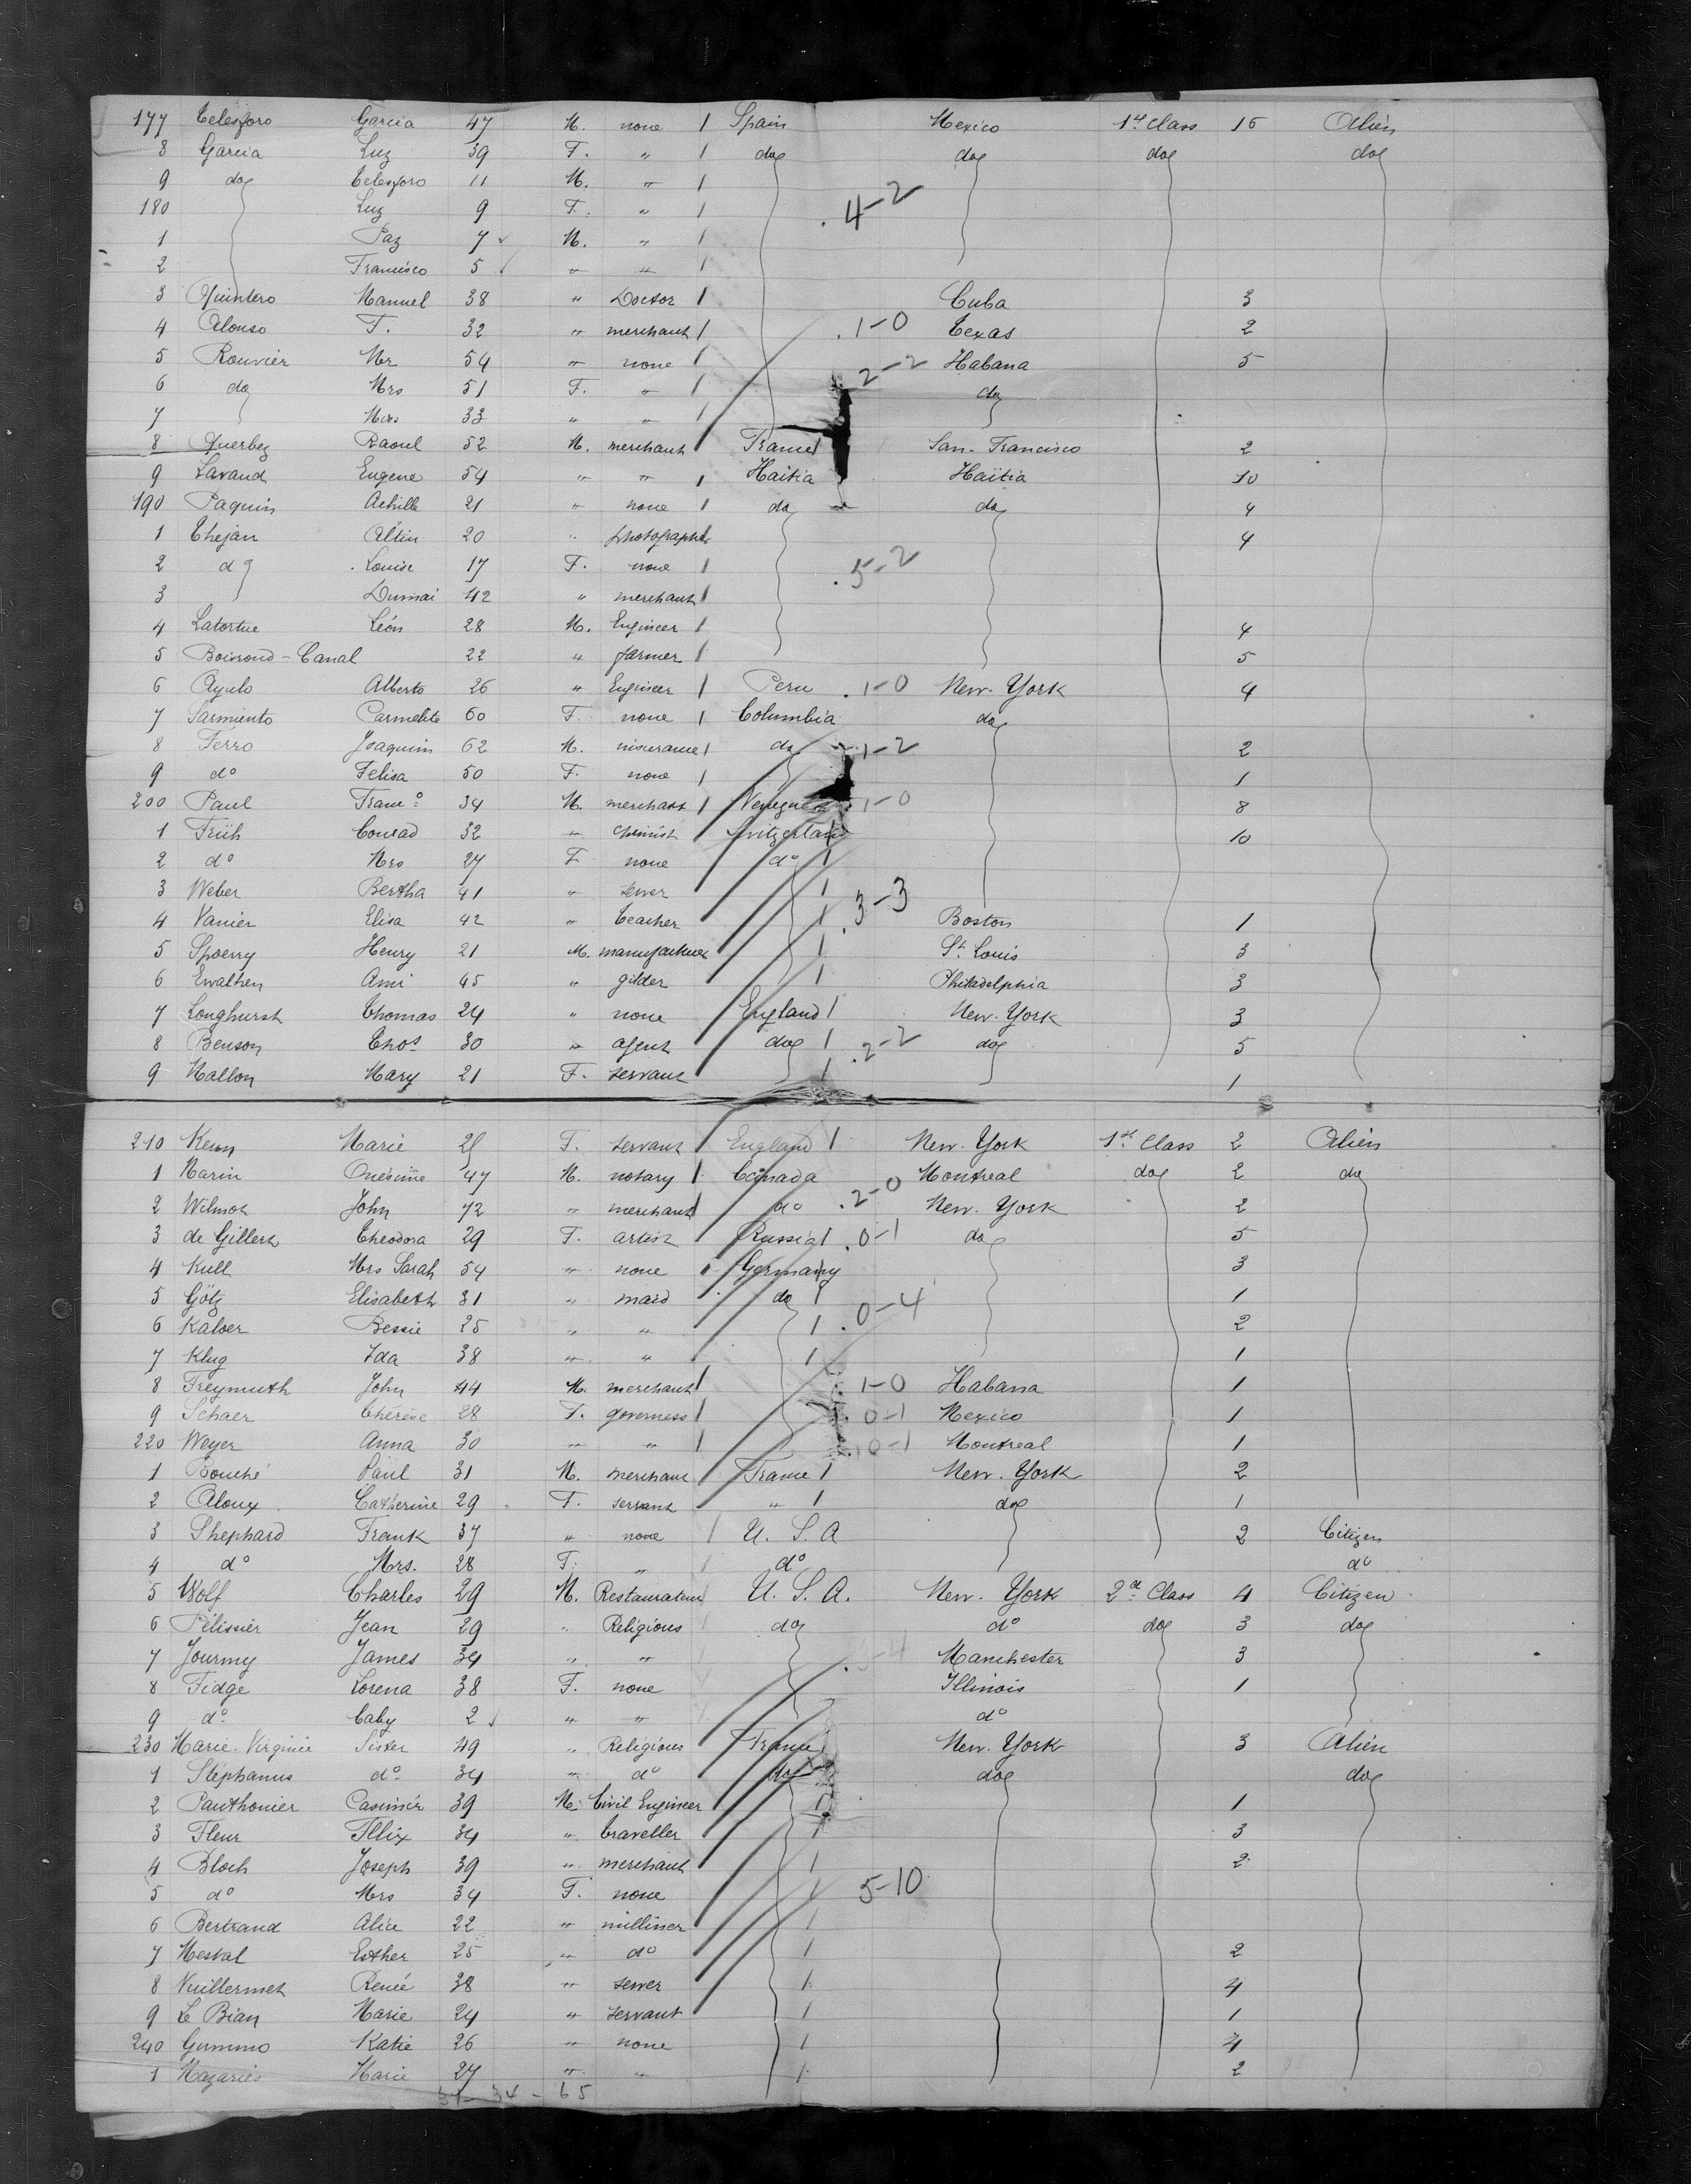 177 Telesforo Garcia 47 M. none 1 Spain Mexico 1st Class 15 Alien
8 Garcia Luz 39 F. " 1 do do do do
9 do Telesforo 11 M. " 1
180 Luz 9 F. " 1 4-2
1 Paz 7 M. " 1
2 Francisco 5 " " 1
3 Quintero Manuel 38 " Doctor 1 Cuba 3
4 Alonso F. 32 " merchant 1 1-0 Texas 2
5 Rouvier Mr 54 " none 1 2-2 Habana 5
6 do Mrs 51 F. " 1 do
7 33 " " 1
8 Querbez Raoul 52 M. merchant France 1 San-Francisco 2
9 Lavaud Eugene 54 " " 1 Haïtia Haïtia 10
190 Paquin Achille 21 " none 1 do do 4
1 Thejan 20 " photographer 4
2 do Louise 17 F. none 1 5-2
3 Dumai 42 " merchant 1
4 Latortue Léon 28 M. Engineer 1 4
5 Boisrond-Canal 22 " farmer 1 5
6 Ayulo Alberto 26 " Engineer 1 Peru 1-0 New-York 4
7 Sarmiento Carmelite 60 F. none 1 Columbia do
8 Ferro Joaquim 62 M. insurance 1 do 1-2 2
9 do Felisa 50 F. none 1 1
200 Paul Franco 34 M. merchant 1 Venezuela 1-0 8
1 Früh Conrad 32 " chimist Switzerland 10
2 do Mrs 27 F none do 1
3 Weber Bertha 41 " sewer 1 3-3
4 Vanier Elisa 42 " teacher 1 Boston 1
5 Spoerry Henry 21 M. manufacturer 1 St. Louis 3
6 Ewalhen Ami 45 " gilder 1 Philadelphia 3
7 Longhurst Thomas 24 " none England 1 New-York 3
8 Benson Thos 30 " agent do 1 2-2 do 5
9 Mallon Mary 21 F. servant 1 1
210 Marie F. servant England 1 New-York 1st Class 2 Alien
1 Marin Onésime 47 M. notary 1 Canada Montreal do 2 do
2 Wilmot John 72 " merchant do 2-0 New-York 2
3 de Gillert Theodora 29 F. artist Russia 1 0-1 do 5
4 Kull Mrs Sarah 54 " none Germany 3
5 Götz Elisabeth 31 " maid do 1 0-4 1
6 Kaloer Bessie 25 " " 1 2
7 Klug Ida 38 " " 1 1
8 Freymuth John 44 M. merchant 1 1-0 Habana 1
9 Schaer Thérèse 28 F. governess 1 0-1 Mexico 1
220 Weyer Anna 30 " " 1 0-1 Montreal 1
1 Bouché Paul 31 M. merchant France 1 New-York 2
2 Aloux Catherine 29 F. servant " 1 do 1
3 Shephard Frank 37 " none 1 U. S. A 2 Citizen
4 do Mrs. 28 F. " 1 do do
5 Wolf Charles 29 M. Restaurateur U. S. A. New-York 2d Class 4 Citizen
6 Pélissier Jean 29 " Religious do do do 3 do
7 Jourmy James 34 " " Manchester 3
8 Fidge Lorena 38 F. none Illinois 1
9 do baby 2 " " do
230 Marie-Virginie Sister 49 " Religious France New-York 3 Alien
1 Stephanus do 34 " do do do do
2 Panthonier Casimir 39 M. Civil Engineer 1 1
3 Fleur Fllix 34 " traveller 1 3
4 Bloch Joseph 39 " merchant 1 2
5 do Mrs 34 F. none 1 5-10
6 Bertrand Alice 22 " milliner 1
7 Mestal Esther 25 " do 1 2
8 Vuillermet Renée 38 " sewer 1 4
9 Le Bian Marie 24 " servant 1 1
240 Gummo Katie 26 " none 1 4
1 Mazariés Marie 27 " " 1 2
34 - 65